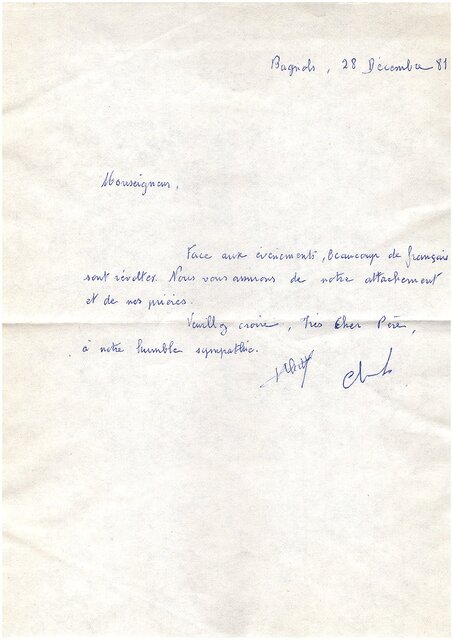 Bagnols, 28 Décembre 81
Monseigneur,
Face aux évènements, beaucoup de français
sont révoltés. Nous vous assurons de notre attachement
et de nos prières.
Veuillez croire, Très Cher Père,
à notre humble sympathie.